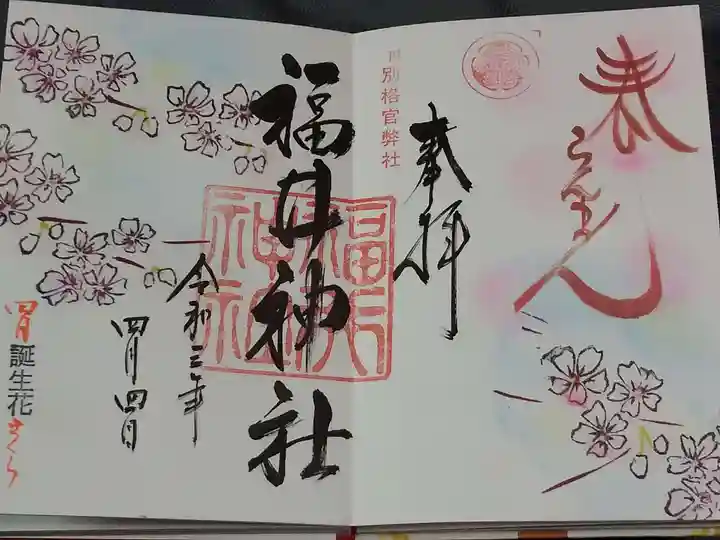 春
らんまん
旧別格官弊社
奉拝
福井神社
福井神社
令和三年
四月四日
四月誕生花さくら